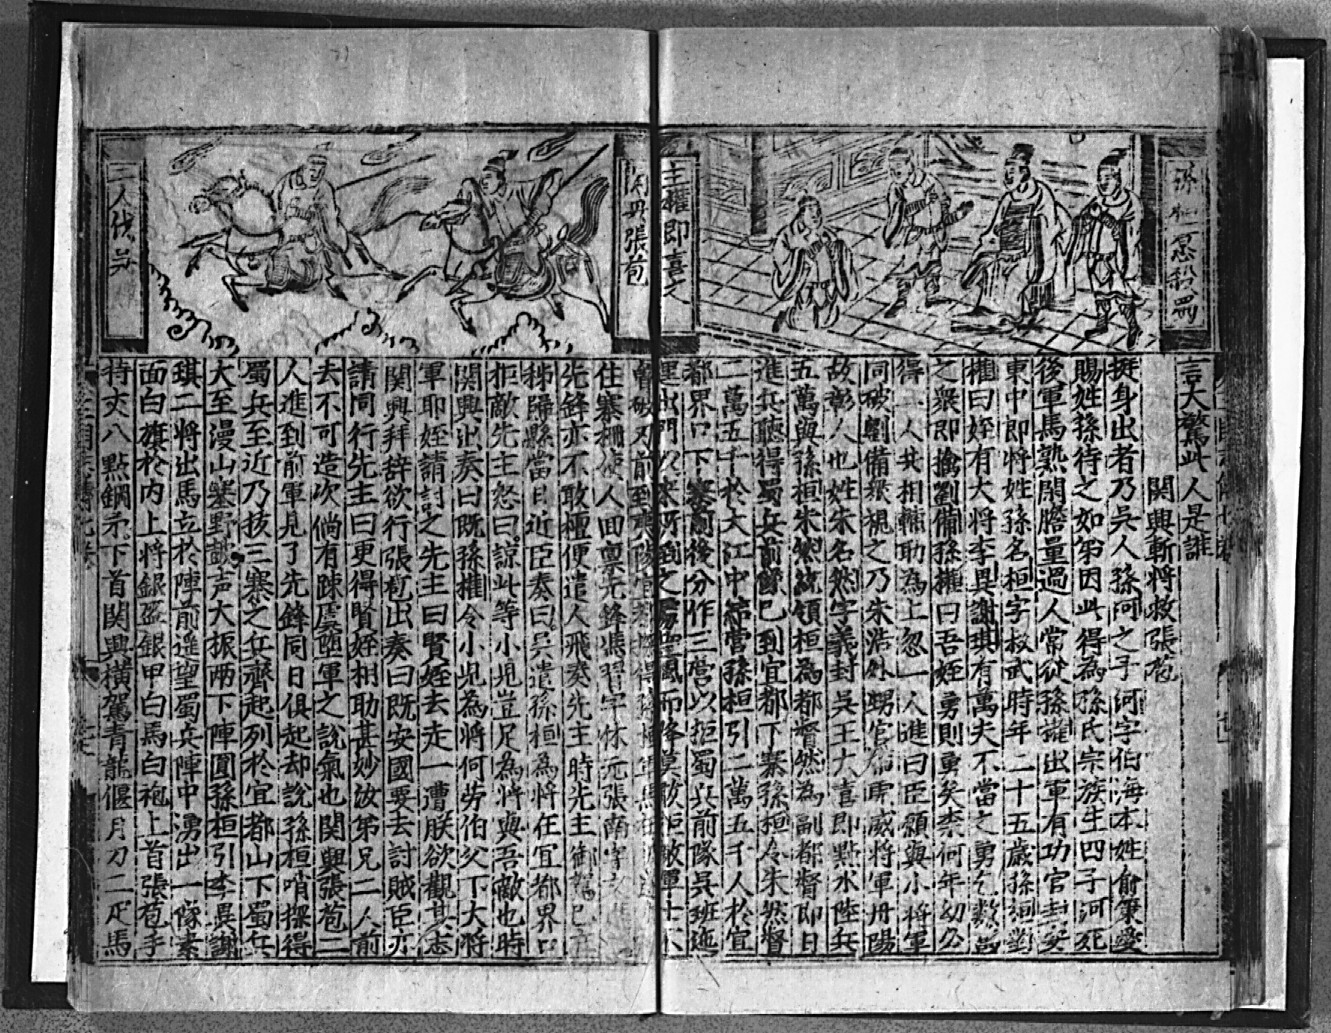 孫桓忿怒
主權即喜文
言大驚此人是誰
關興斬將救張苞
挺身出者乃吳人孫河之子河字伯海本姓俞策愛
賜姓孫待之如弟因此得為孫氏宗族生四子河死
後軍馬熟閑膽量過人常從孫權出軍有功官封安
東中郎將姓孫名桓字叔武時年二十五歲孫桓對
權曰姪有大將李異謝琪有萬夫不當之勇乞數萬
之眾即擒劉備孫權曰吾姪勇則勇矣柰何年幼公
得一人共相輔助為上忽一人進曰臣願與小將軍
同破劉備眾視之乃朱浩外甥官為虎威將軍丹陽
故彰人也姓朱名然字義封吳王大喜即點水陸兵
五萬與孫桓朱然統領桓為都督然為副都督即日
進兵聽得蜀兵前隊已到宜都下寨孫桓令朱然督
二萬五千於大江中紮營孫桓引二萬五千人於宜
都界口下寨前後分作三營以拒蜀兵前隊吳班迤
而降莫敢拒敵軍士不
關興張苞
二人伐吳
住寨柵使人回稟先鋒馮習字休元張南字文
先鋒亦不敢擅便遣人飛奏先主時先主御駕已在
秭歸縣當日近臣奏曰吳遣孫桓為將在宜都界口
拒敵先主怒曰諒此等小児豈足為將與吾敵也時
関興出奏曰既孫權令小児為將何劳伯父下大將
軍耶姪請討之先主曰賢姪去走一遭朕欲觀其志
関興拜辞欲行張苞出奏曰既安國要去討賊臣亦
請同行先主曰更得賢姪相助甚妙汝弟兄二人前
去不可造次倘有踈虞墮軍之說氣也関興張苞二
人進到前軍見了先鋒同日俱起却說孫桓哨探得
蜀兵至近乃拔三寨之兵齊起列於宜都山下蜀兵
大至漫山塞野皷声大振兩下陣圓孫桓引李異謝
琪二將出馬立於陣前遙望蜀兵陣中湧出一隊素
面白旗於内上將銀盔銀甲白馬白袍上首張苞手
持丈八點鋼矛下首関興橫駕青龍偃月刀二疋馬